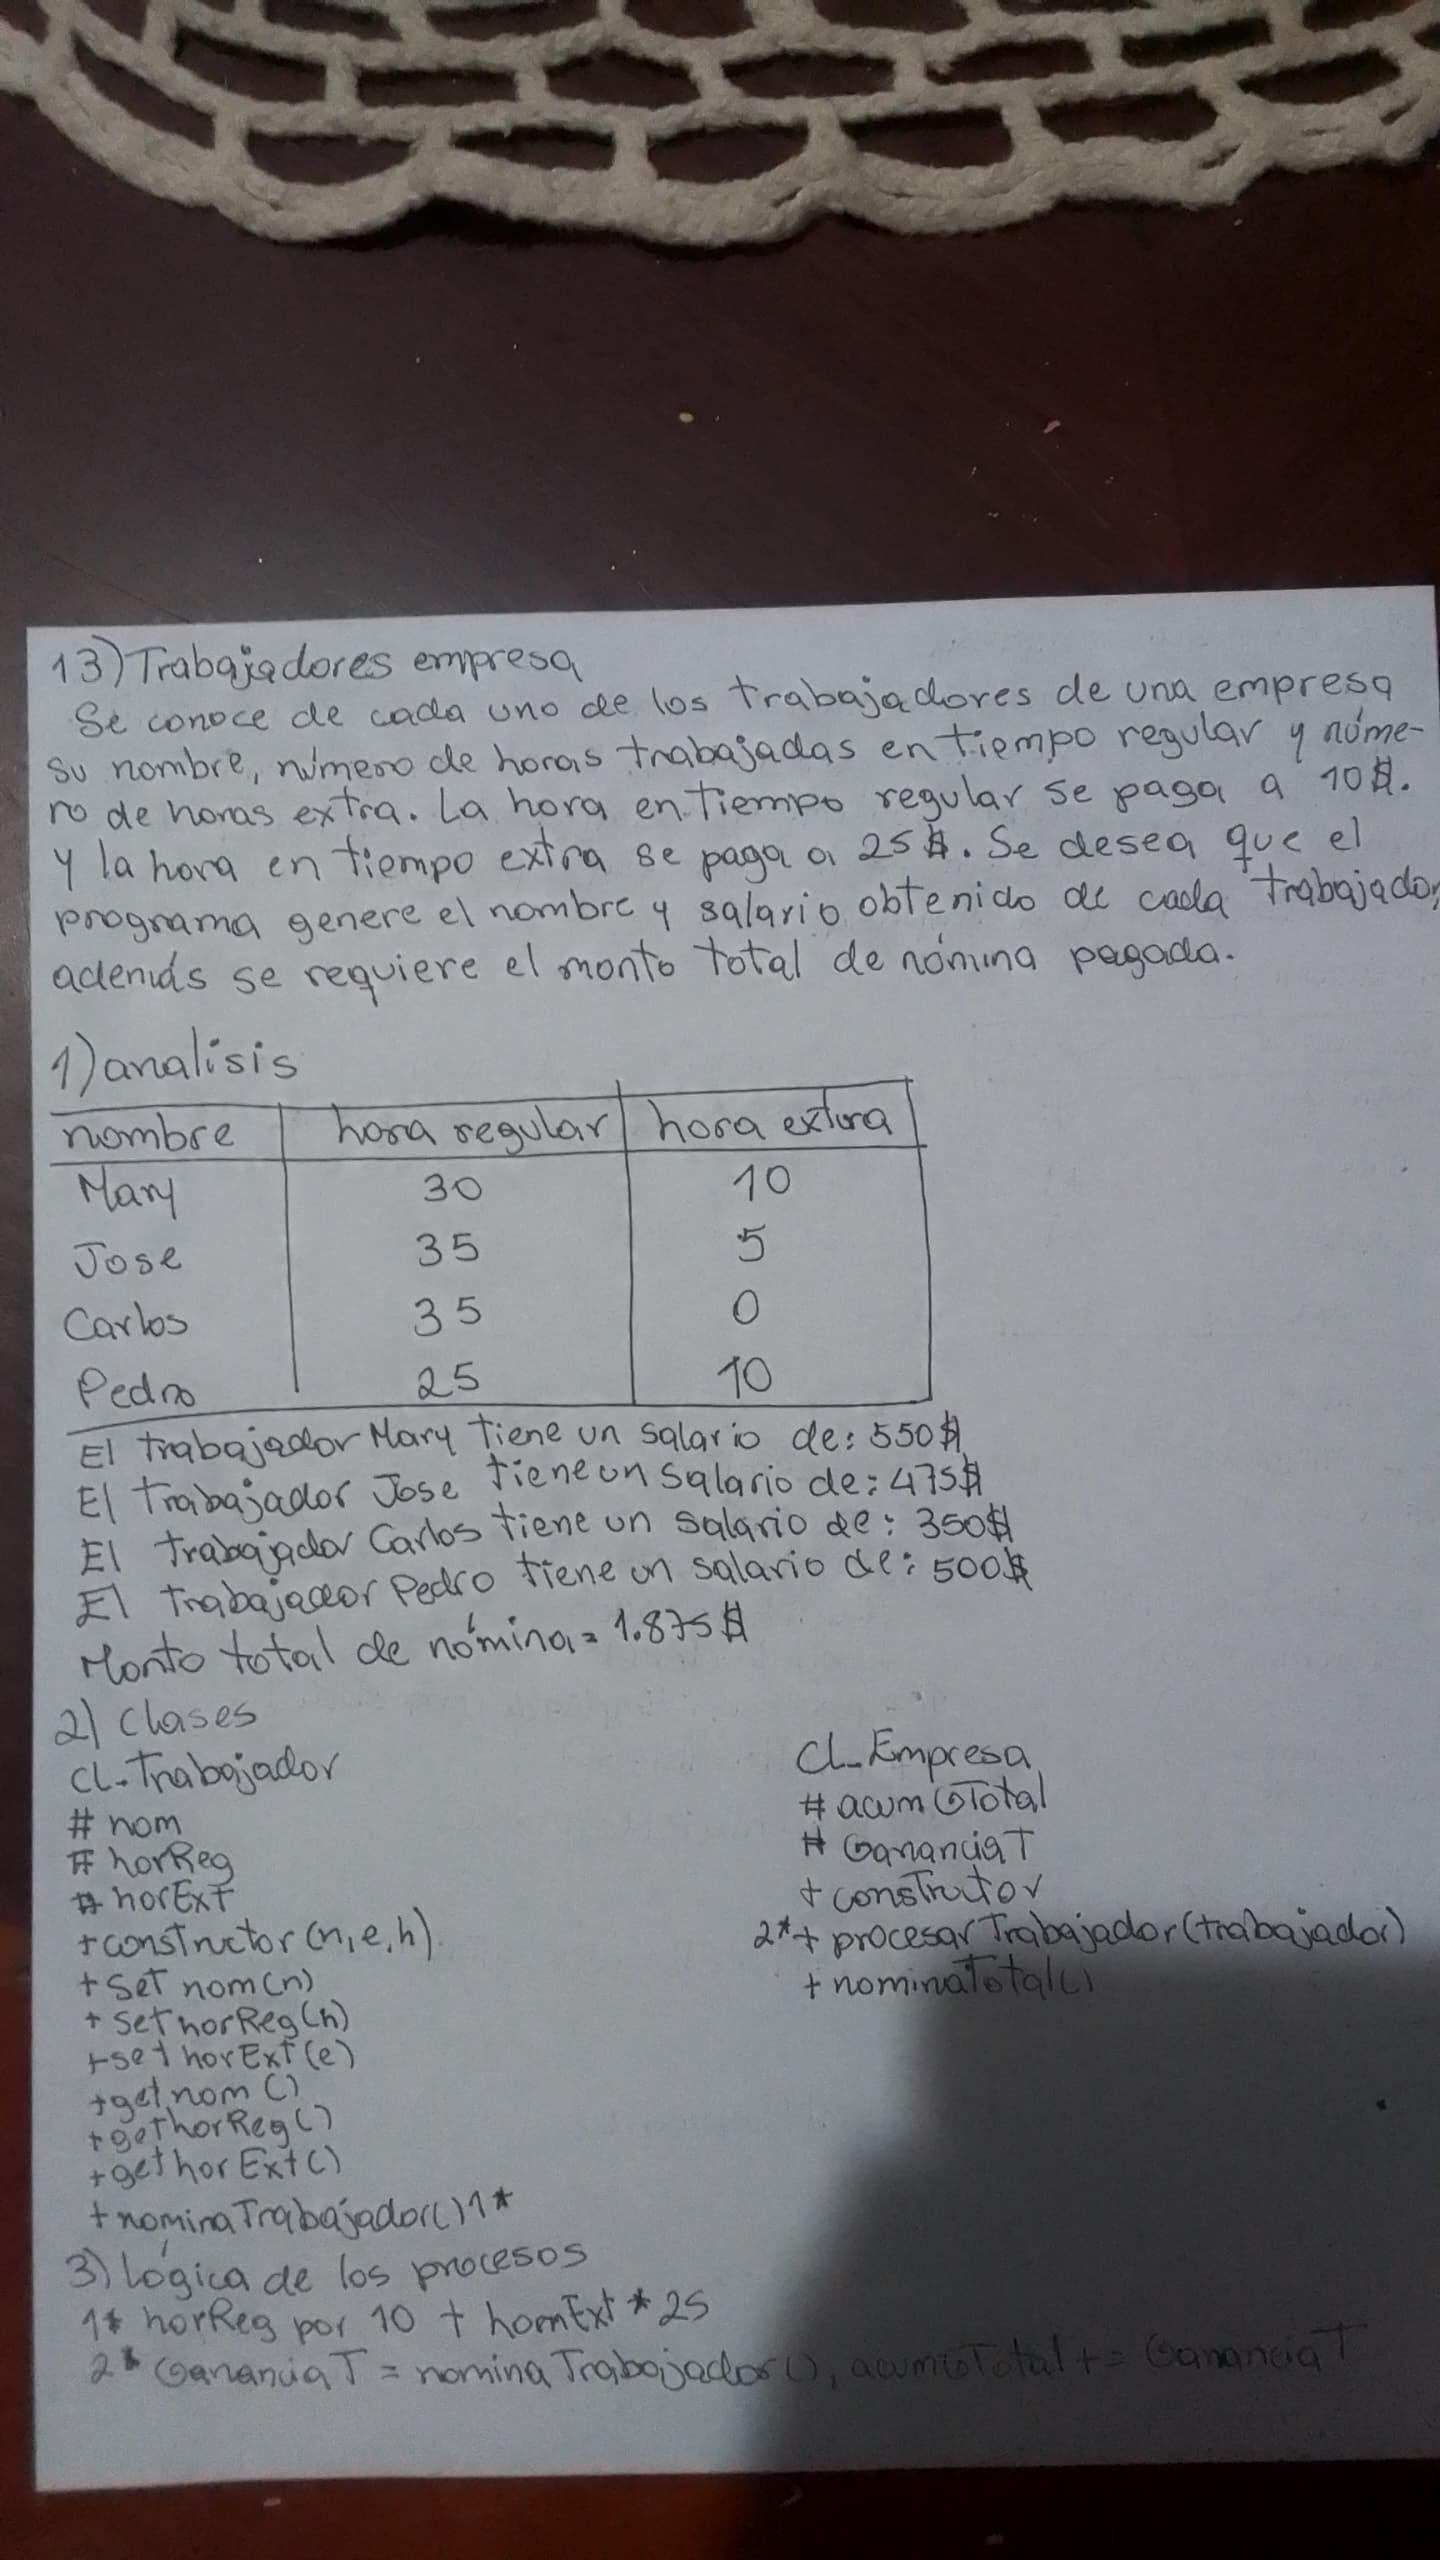 13) Trabajadores empresa
Se conoce de cada uno de los trabajadores de una empresa
su nombre, número de horas trabajadas en tiempo regular y núme-
ro de horas extra. La hora en tiempo regular se paga a 10$.
y la hora en tiempo extra se paga a 25$. Se desea que el
programa genere el nombre y salario obtenido de cada trabajador,
además se requiere el monto total de nómina pagada.
1) analisis
nombre hora regular hora extra
Mary 30 10
Jose 35 5
Carlos 35 0
Pedro 25 10
El trabajador Mary tiene un salario de: 550$
El trabajador Jose tiene un salario de: 475$
El trabajador Carlos tiene un salario de: 350$
El trabajador Pedro tiene un salario de: 500$
Monto total de nómina= 1.875$
2) Clases
CL_Trabajador
# nom
# horReg
# horExt
+constructor(n,e,h)
+set nom(n)
+ set horReg(h)
+set horExt(e)
+get nom ()
+get horReg()
+get horExt()
+nominaTrabajador()1*
CL_Empresa
# acumGTotal
# GananciaT
+construtor
2*+ procesarTrabajador(trabajador)
+nominaTotal()
3) Lógica de los procesos
1* horReg por 10 + hornExt * 25
2* GananciaT = nominaTrabajador(), acumGTotal += GananciaT